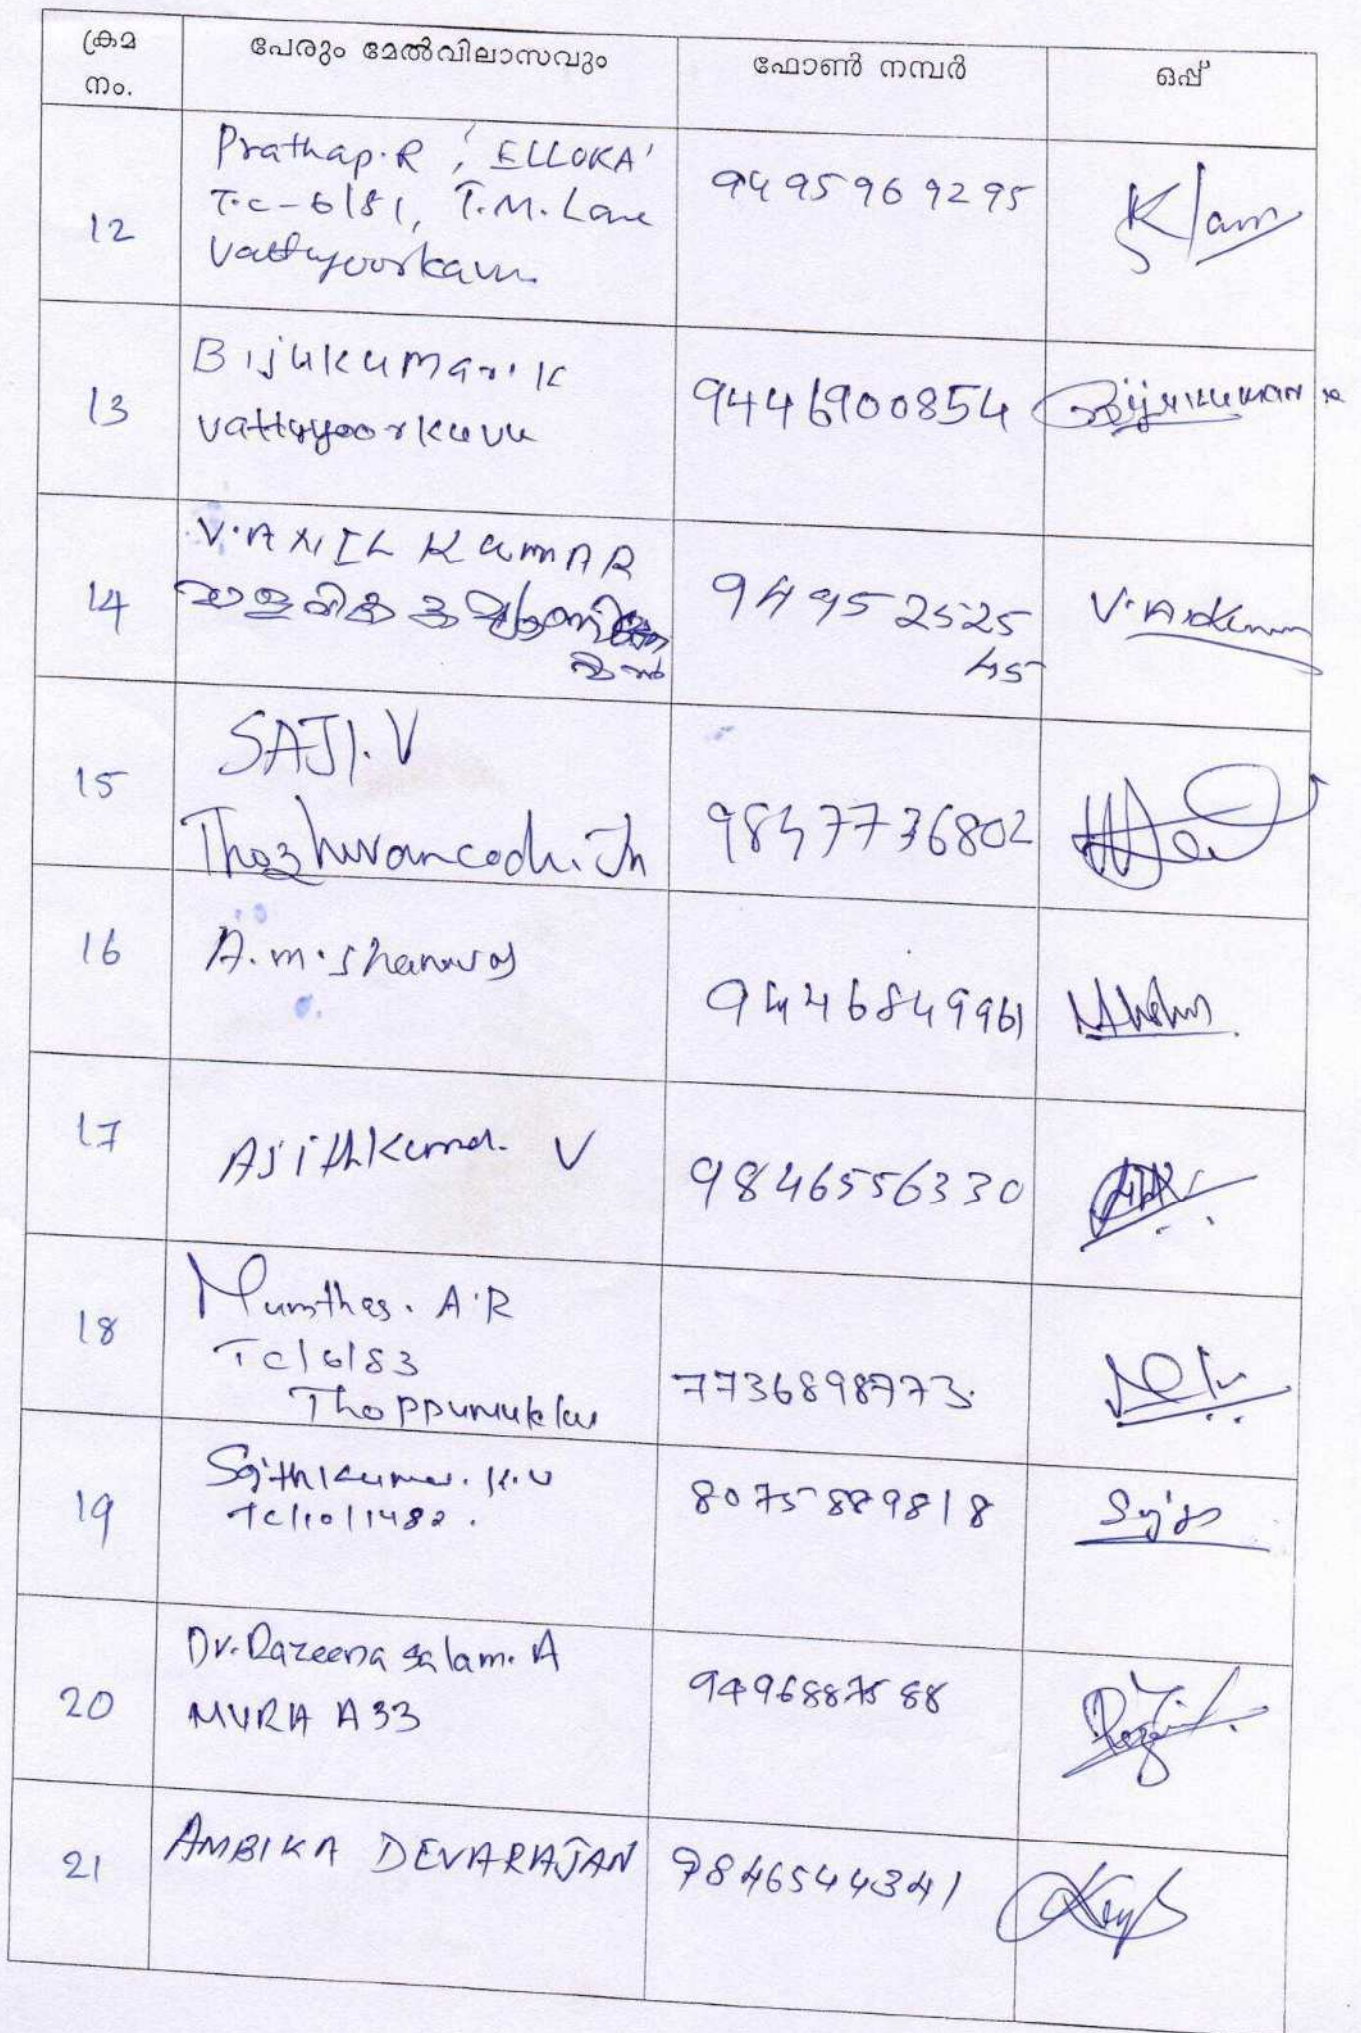 ക്രമ
നം.
പേരും മേൽവിലാസവും
ഫോൺ നമ്പർ
ഒപ്പ്
12
Prathap.R, 'ELLOKA'
T.C-6/81, T.M. Lane
Vattiyoorkavu
9495969295
13
Bijukumar.K
Vattiyoorkavu
9446900854
Bijukumar K
14
V.ANIL KUMAR
94495 2525
45
15
SAJI.V
Thozhuvancode Jn
9847736802
16
A.m.shanavas
9446849961
17
Ajithkumar. V
9846556330
18
Mumthas. A.R
TC/6/83
Thoppumukku
7736898773.
19
Sajithkumar. K.V
TC/10/1482.
8075889818
20
Dr.Razeena Salam. A
MVRA A33
9496887588
21
AMBIKA DEVARAJAN
9846544341